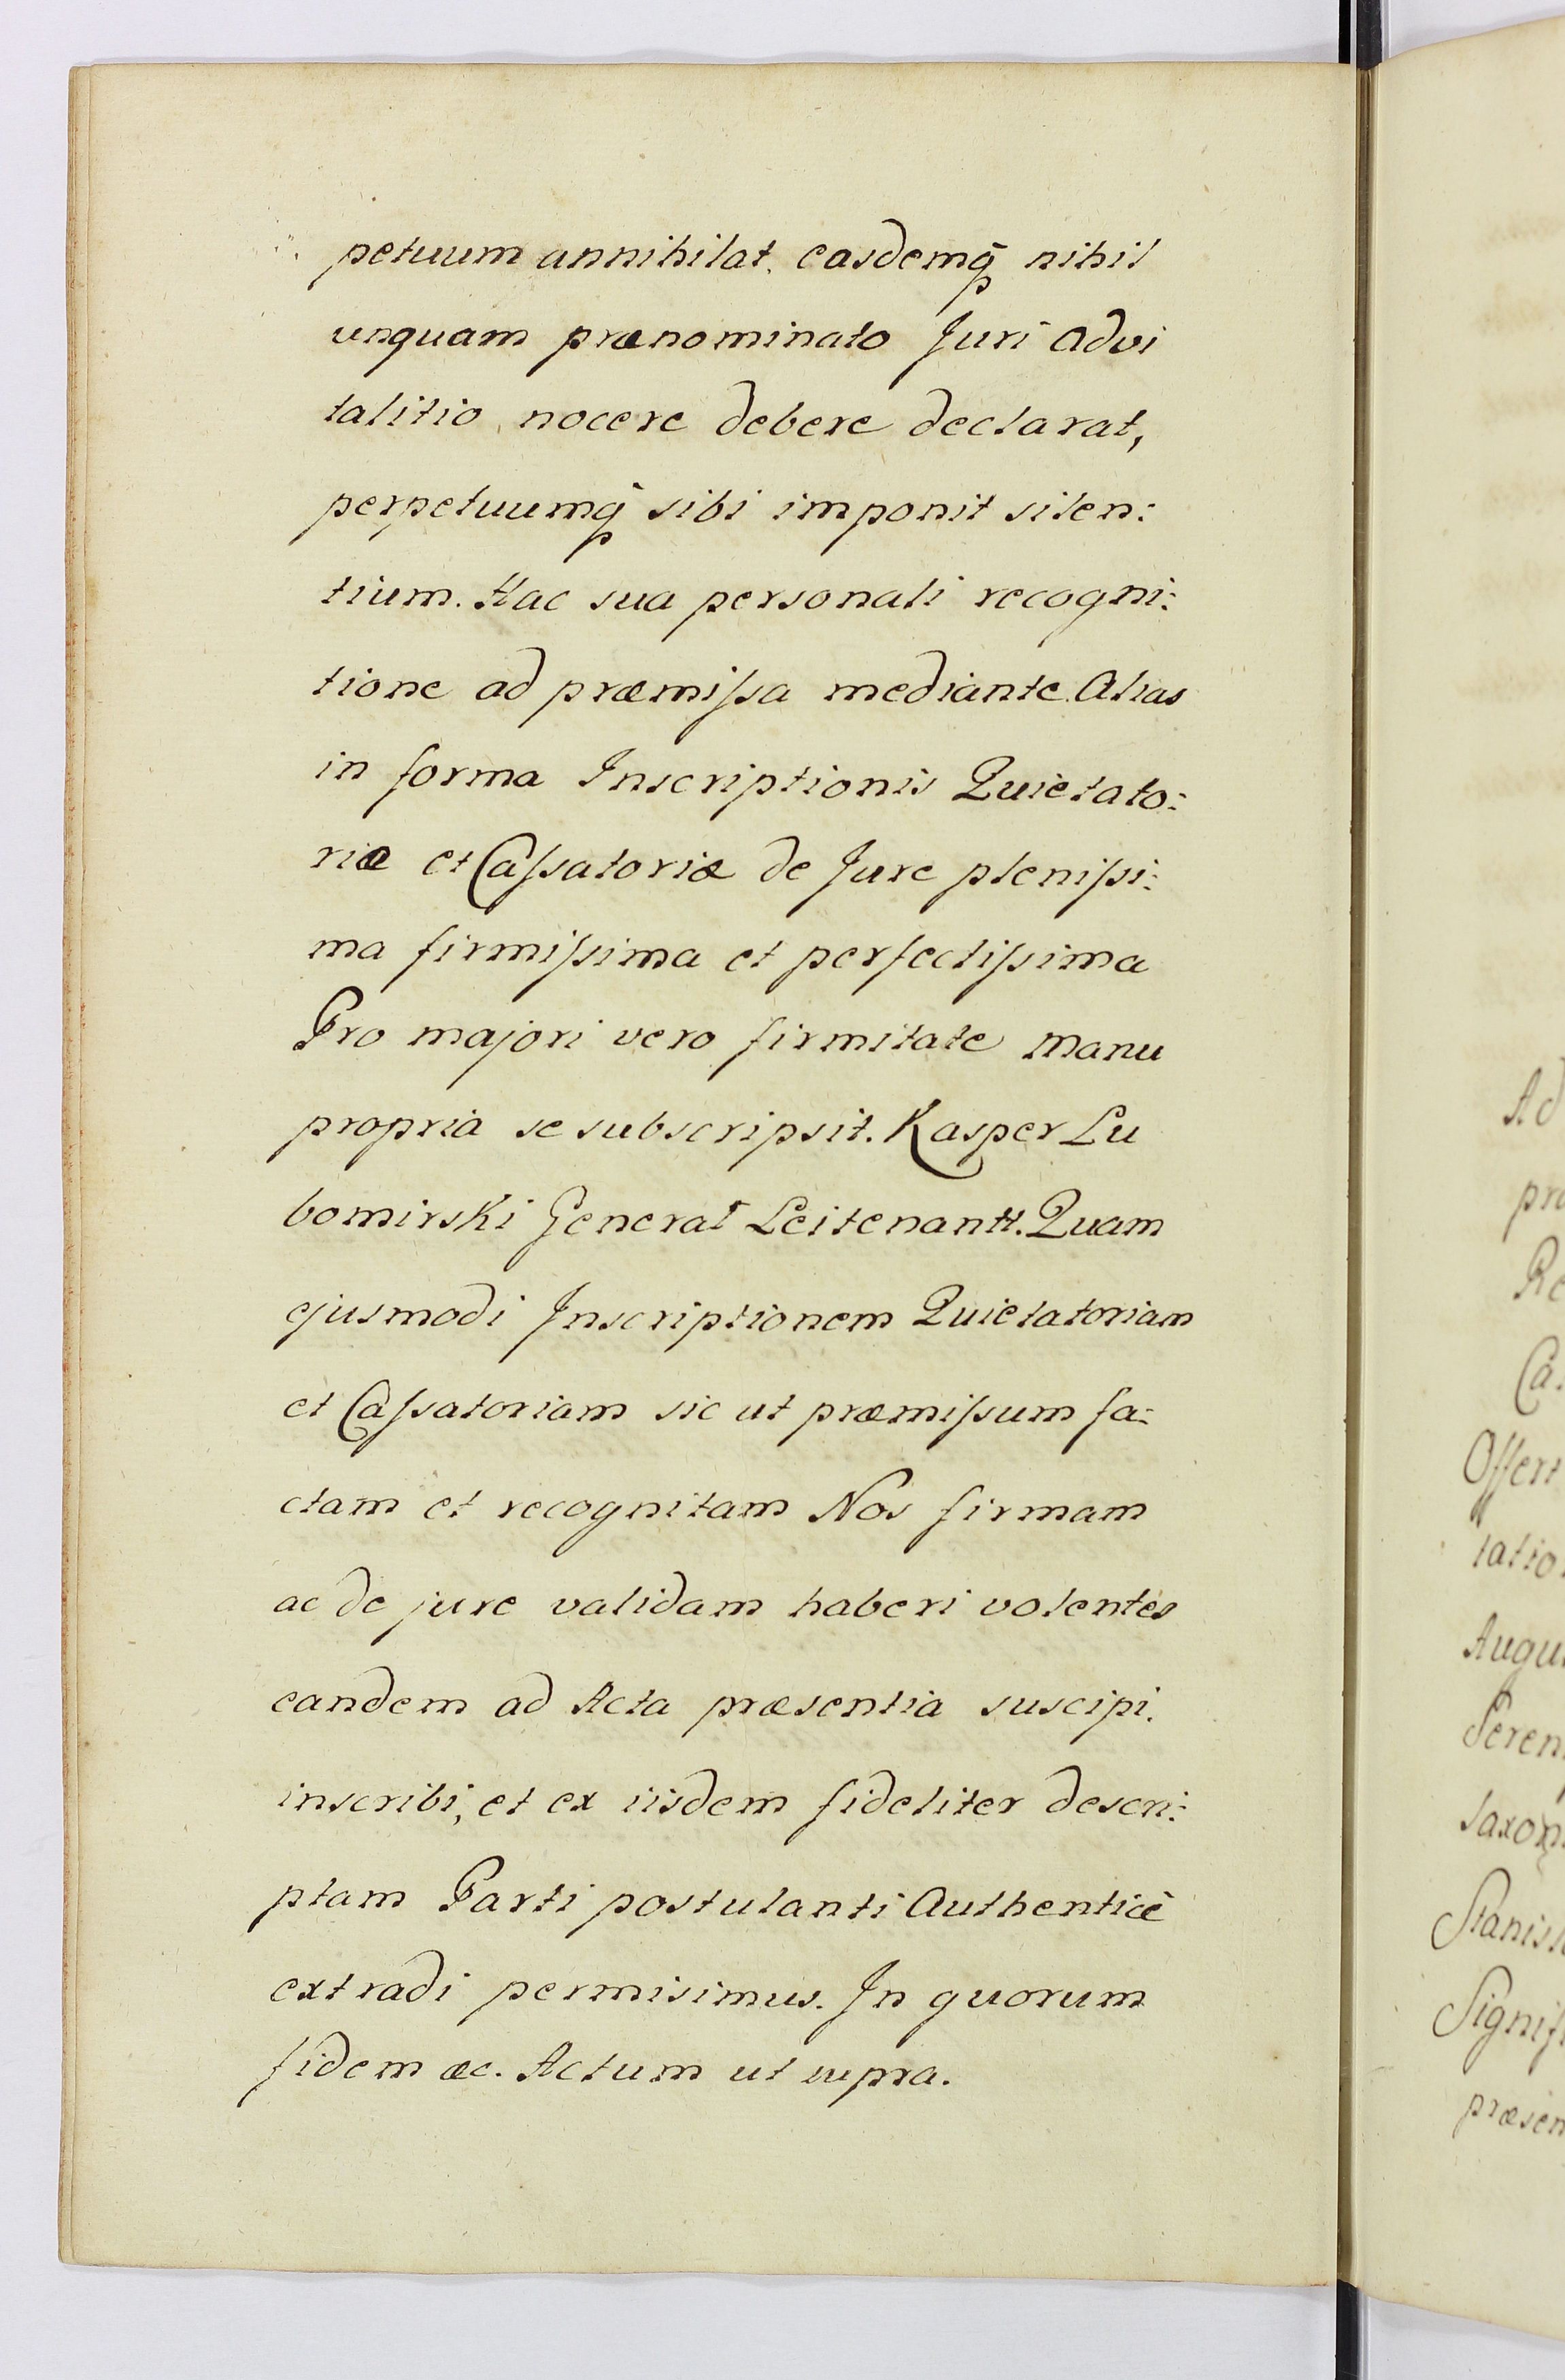 petuum annihilat. easdemq́ nihil
unquam prænominato Juri advi
talitio nocere debere declarat,
perpetuumq́ sibi imponit silen:
tium. Hac sua personali recogni:
tione ad præmiſsa mediante. Alias
in forma Inscriptionis Quietato:
riæ et Caſsatoriæ de Jure pleniſsi:
ma firmiſsima et perfectiſsima
Pro majori vero firmitate manu
propria se subscripsit. Kasper Lu
bomirski General Leitenantt. Quam
ejusmodi Inscriptionem Quietatoriam
et Caſsatoriam sic ut præmiſsum fa:
ctam et recognitam Nos firmam
ac de jure validam haberi volentes
eandem ad Acta præsentia suscipi.
inscribi, et ex iisdem fideliter descri:
ptam Parti postulanti Authenticè
extradi permisimus. In quorum
fidem &c. Actum ut supra.
Ad
pra
Re
Ca
Offert
tatio
Augu
Seren
Saxon
Stanisl
Signif
præsen